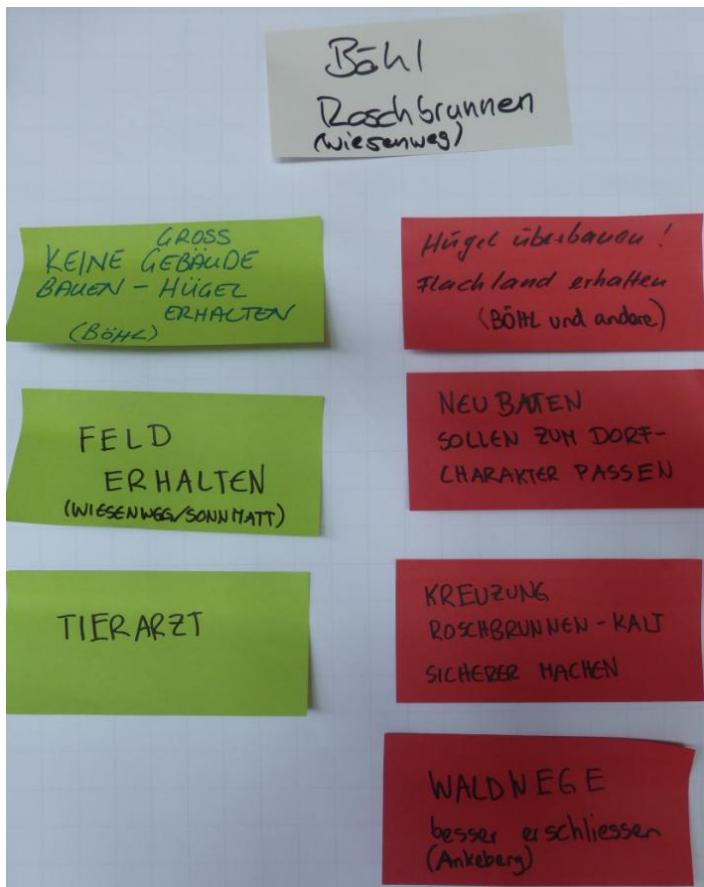 Böhl
Roschbrunnen
(Wiesenweg)
GROSS
KEINE GEBÄUDE
BAUEN - HÜGEL
ERHALTEN
(BÖHL)
FELD
ERHALTEN
(WIESENWEG/SONNMATT)
TIERARZT
Hügel überbauen!
Flachland erhalten
(BÖHL und andere)
NEUBATEN
SOLLEN ZUM DORF-
CHARAKTER PASSEN
KREUZUNG
ROSCHBRUNNEN - KALT
SICHERER MACHEN
WALDWEGE
besser erschliessen
(Ankeberg)